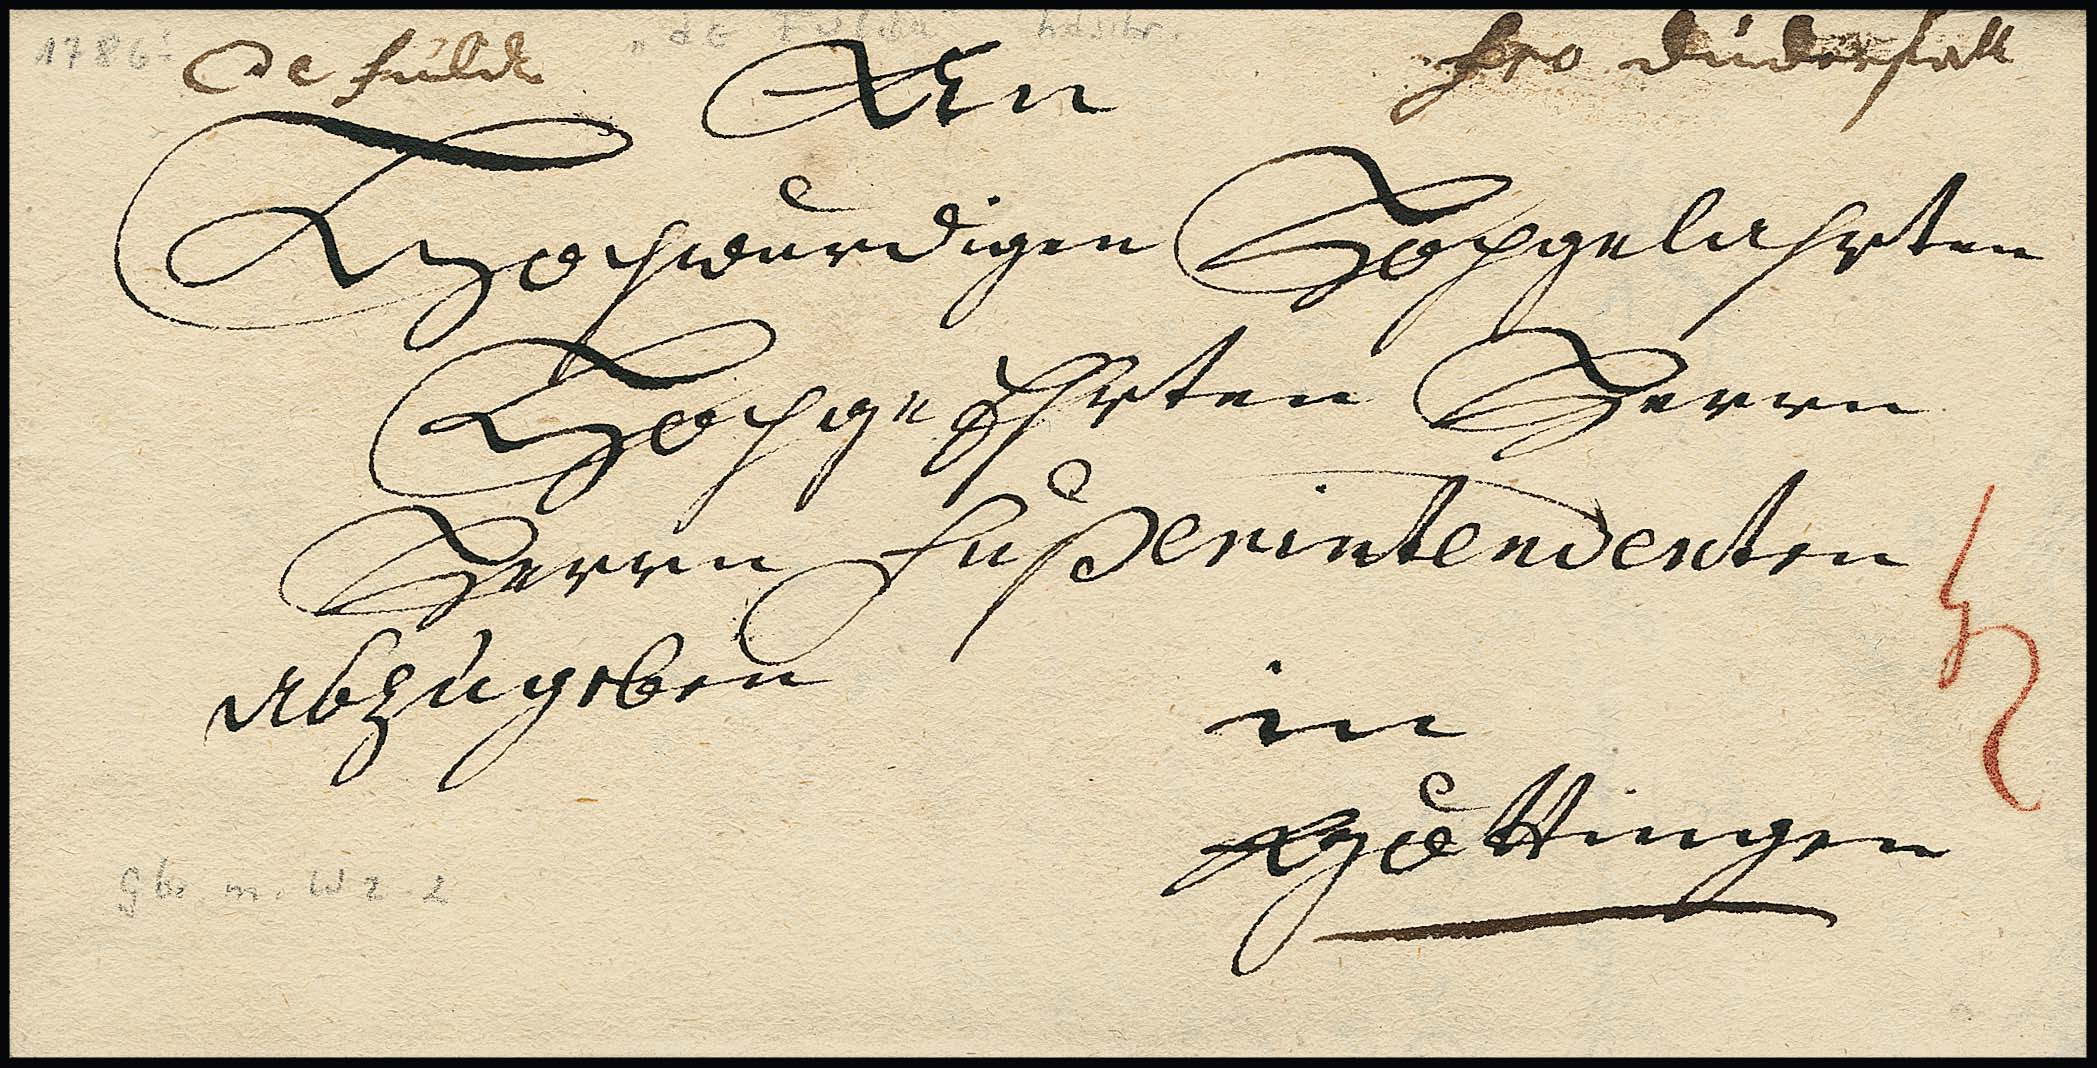 1786:
"de Fulda" hdschr.
de fulda
fro duderstatt
An
Hochwürdigen Hochgelahrten
Hochgeehrten Herrn
Herrn Superintendenten
abzugeben
in
Göttingen
m. W 2